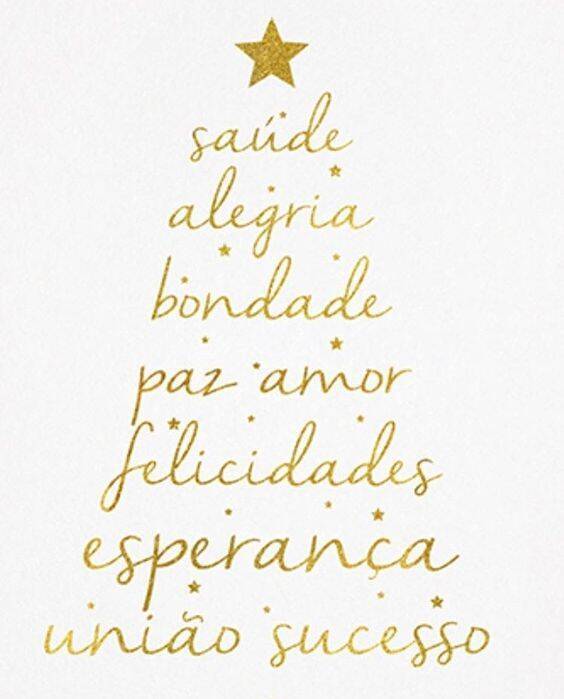 saúde
alegria
bondade
paz amor
felicidades
esperança
união sucesso